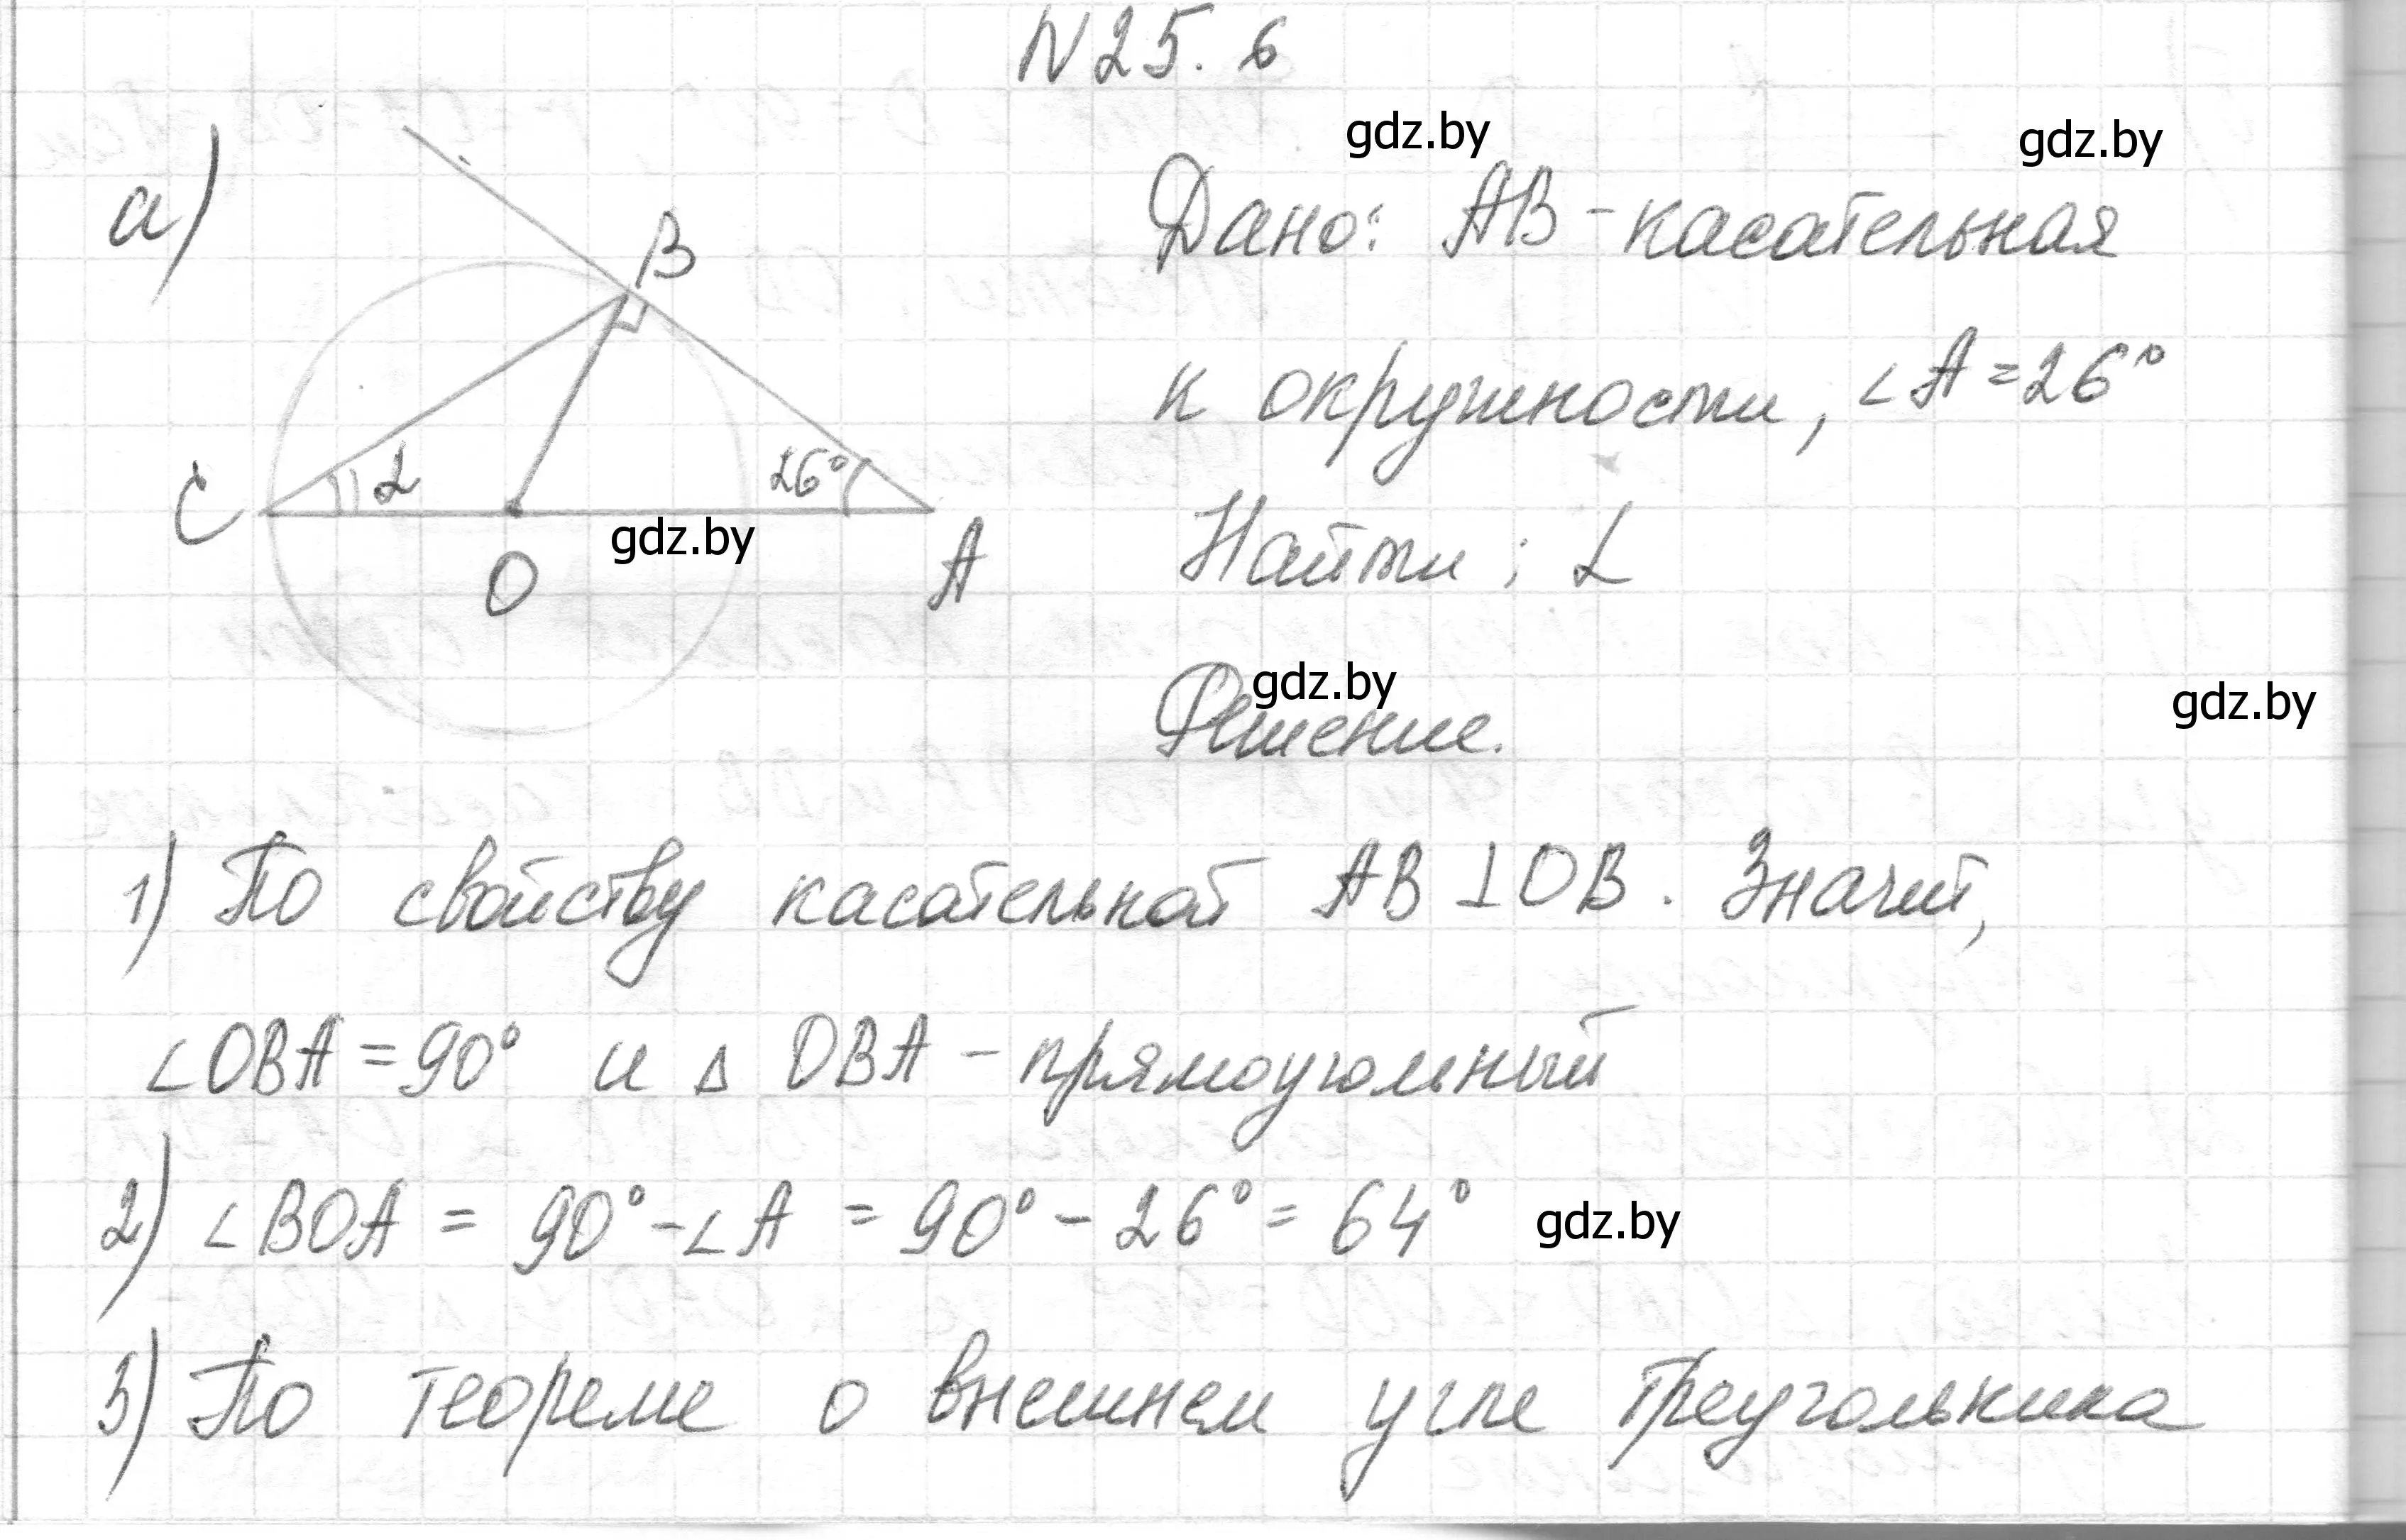 N 25. 6
gdz.by
gdz.by
а)
B
Дано: AB - касательная
к окружности, ∠A = 26°
C
α
26°
gdz.by
O
A
Найти: α
gdz.by
gdz.by
Решение.
1) По свойству касательной AB ⊥ OB. Значит,
∠OBA = 90° и △ OBA - прямоугольный
2) ∠BOA = 90° - ∠A = 90° - 26° = 64°
gdz.by
3) По теореме о внешнем угле треугольника